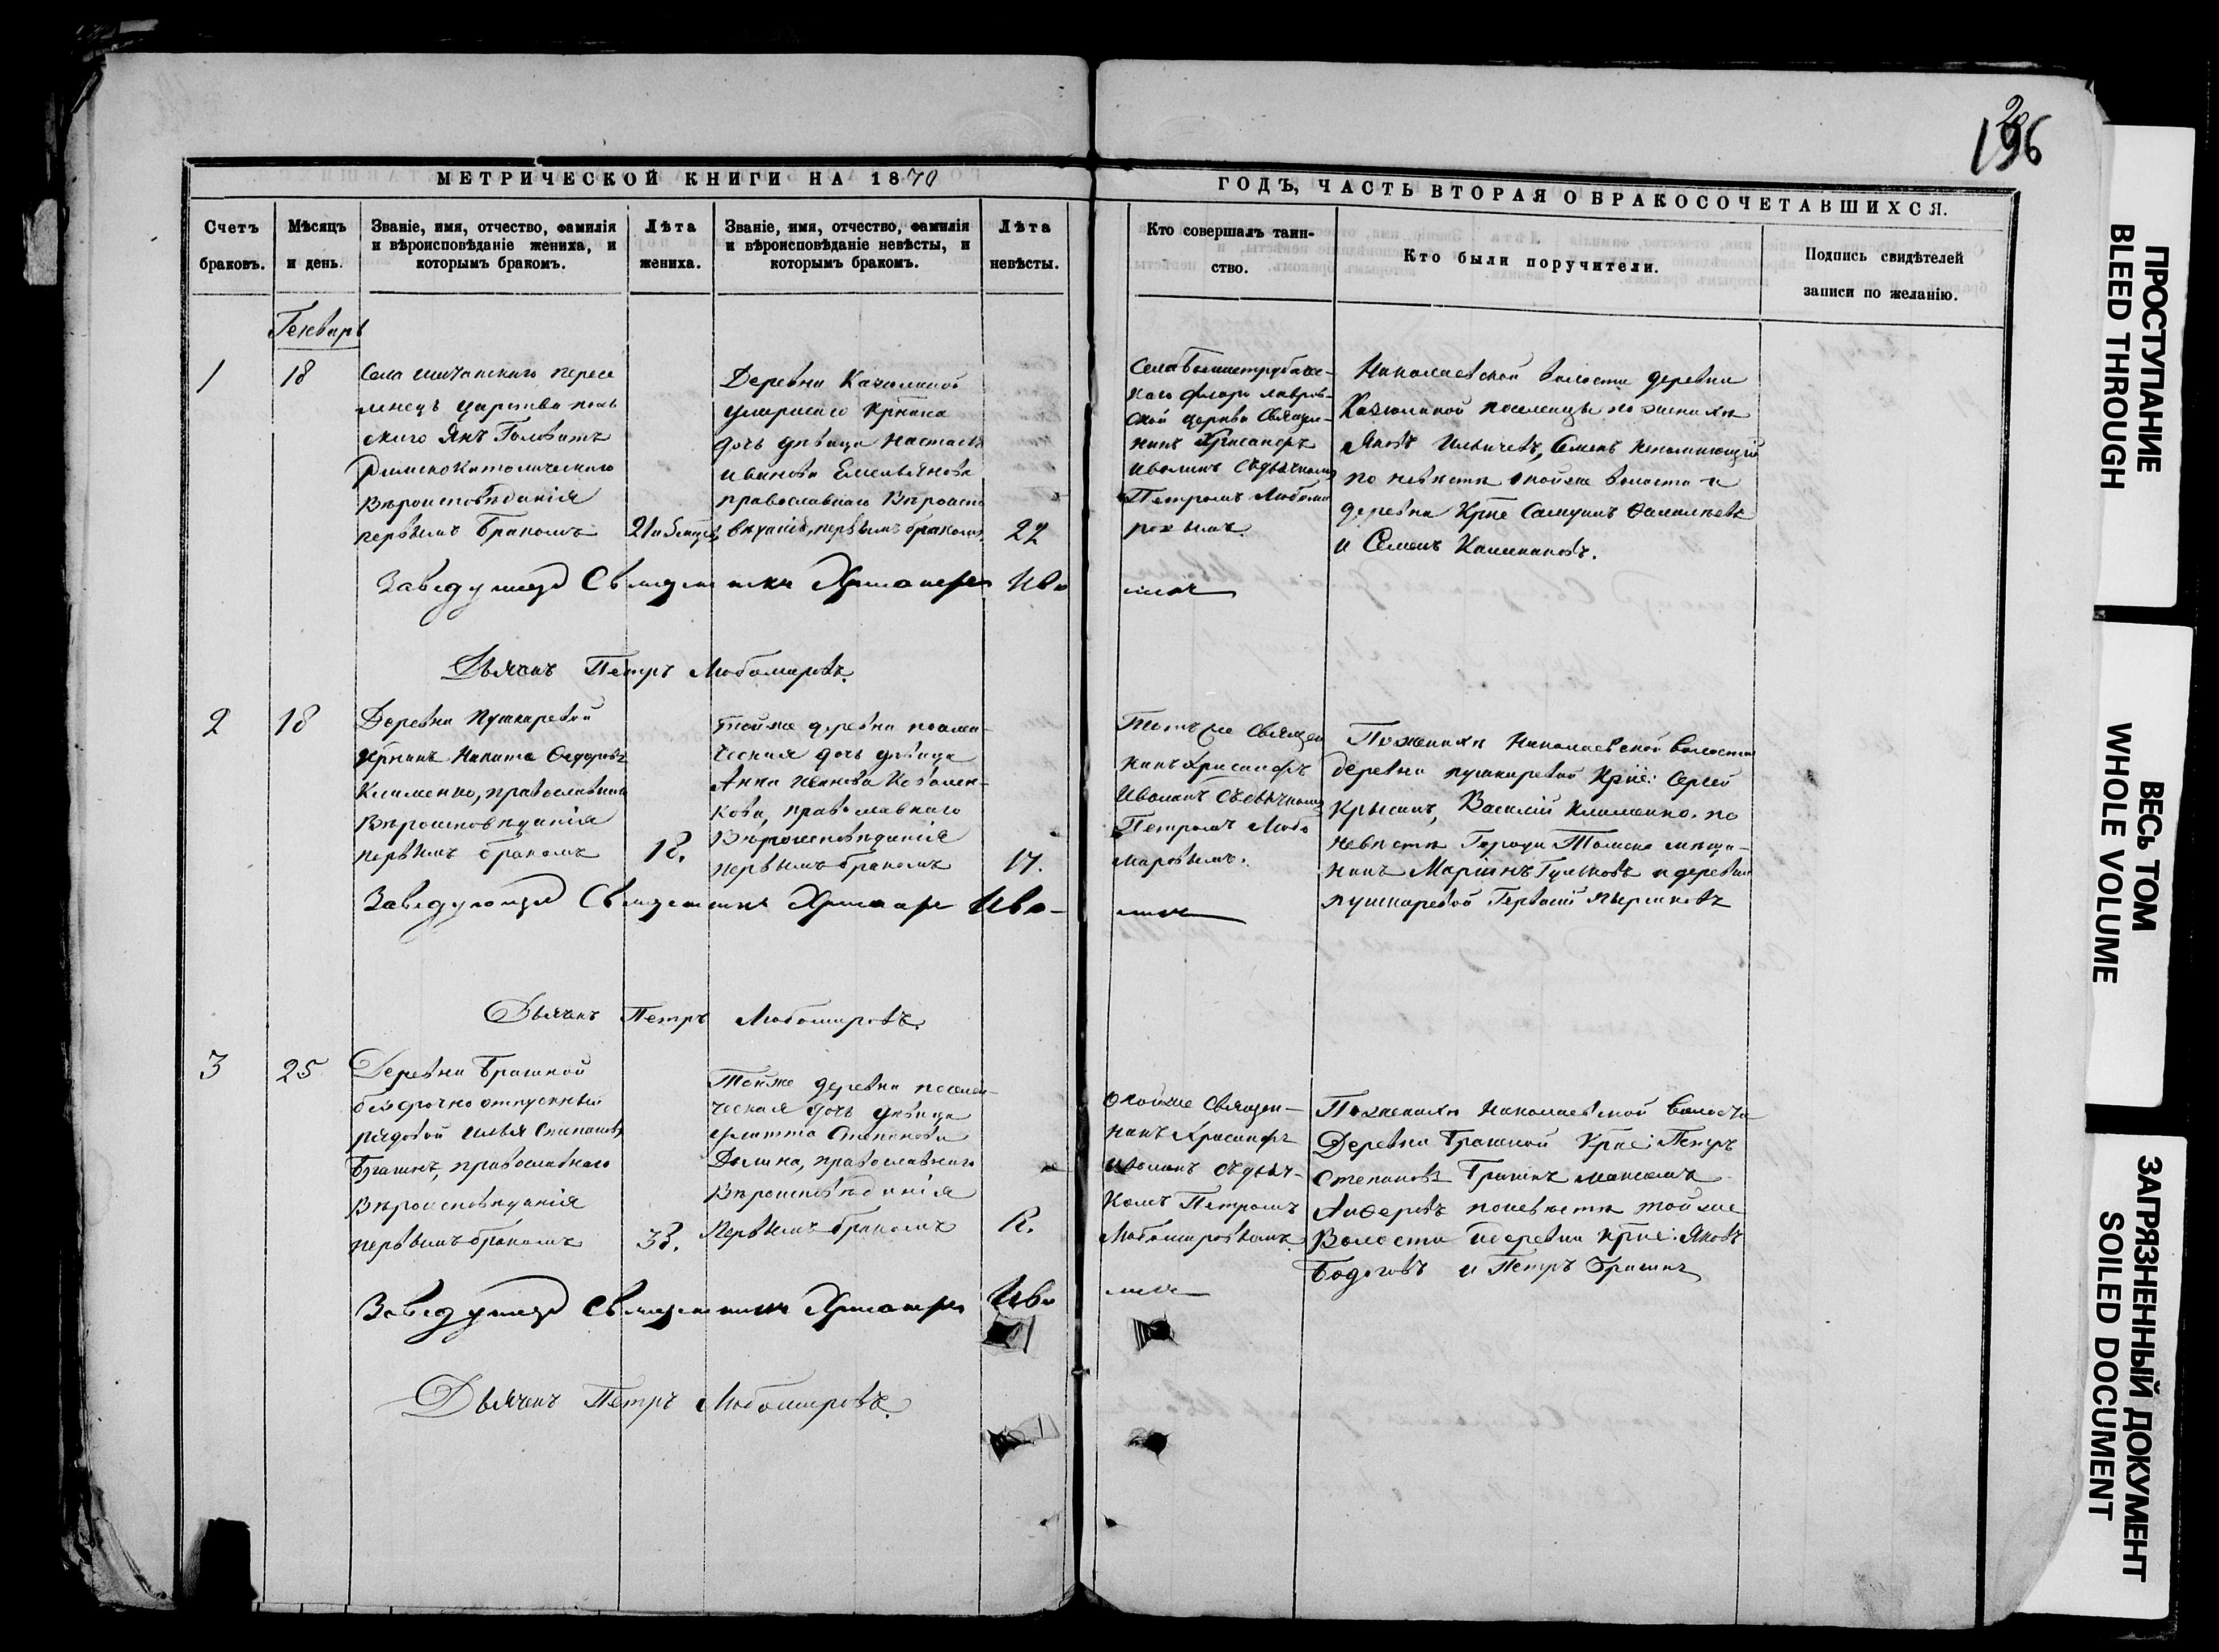 196
2
МЕТРИЧЕСКОЙ КНИГИ НА 1870
ГОДЪ, ЧАСТЬ ВТОРАЯ О БРАКОСОЧЕТАВШИХСЯ.
Счетъ
браковъ.
Мѣсяцъ
и день.
Званіе, имя, отчество, фамилія
и вѣроисповѣданіе жениха, и
которымъ бракомъ.
Лѣта
жениха.
Званіе, имя, отчество, фамилія
и вѣроисповѣданіе невѣсты, и
которымъ бракомъ.
Лѣта
невѣсты.
Кто совершалъ таин-
ство.
Кто были поручители.
Подпись свидѣтелей
записи по желанію.
Генварь
1
18
Села пересе
ленецъ царства поль
скаго Янъ
Римскокатолическаго
Вѣроисповѣданія
первымъ бракомъ
21
Деревни
умершаго
дочь дѣвица Настасья
Иванова Емельянова
православнаго Вѣроиспо
вѣданія, первымъ бракомъ
22
Села
Флоро Лавров-
ской церкви Священ-
никъ Хрисанфъ
Иволинъ Съдьячкомъ
Петромъ Любоми
ровымъ.
Николаевской волости деревни
поселенцы по женихѣ
Яковъ Ильичевъ, Семенъ
по невѣстѣ тойже волости и
деревни Крпе
и Семенъ
Заведующій Священникъ Хрисанфъ Иво
линъ
Дьячекъ Петръ Любомировъ.
2
18
Деревни Пушкаревой
Никита Федоровъ
Клименко, православнаго
Вѣроисповѣданія
первымъ бракомъ
18.
Тойже деревни поселен-
ческая дочь дѣвица
Анна
кова, православнаго
Вѣроисповѣданія
первымъ бракомъ
17.
Тотъ же Священ
никъ Хрисанфъ
Иволинъ Съдьячкомъ
Петромъ Любо
мировымъ.
По женихѣ Николаевской волости
деревни пушкаревой Крпе: Сергей
Василій Клименко. по
невѣстѣ Города Томска мѣща-
нинъ и деревни
пушкаревой
Заведующій Священникъ Хрисанфъ Иво-
линъ
Дьячекъ Петръ Любомировъ.
3
25
Деревни
отпускный
рядовой Илья Степановъ
православнаго
Вѣроисповѣданія
первымъ бракомъ
33.
Тойже деревни поселен-
ческая дочь дѣвица
Степанова
православнаго
Вѣроисповѣданія
Первымъ бракомъ
Священ-
никъ Хрисанфъ
Иволинъ съдьяч-
комъ Петромъ
Любомировымъ.
По женихѣ Николаевской волости
Деревни Крпе: Петръ
Степановъ
по невѣстѣ тойже
Волости и деревни Крпе: Яковъ
и Петръ
Заведующій Священникъ Хрисанфъ Иво
линъ
Дьячекъ Петръ Любомировъ.
ПРОСТУПАНИЕ
BLEED THROUGH
ВЕСЬ ТОМ
WHOLE VOLUME
ЗАГРЯЗНЕННЫЙ ДОКУМЕНТ
SOILED DOCUMENT